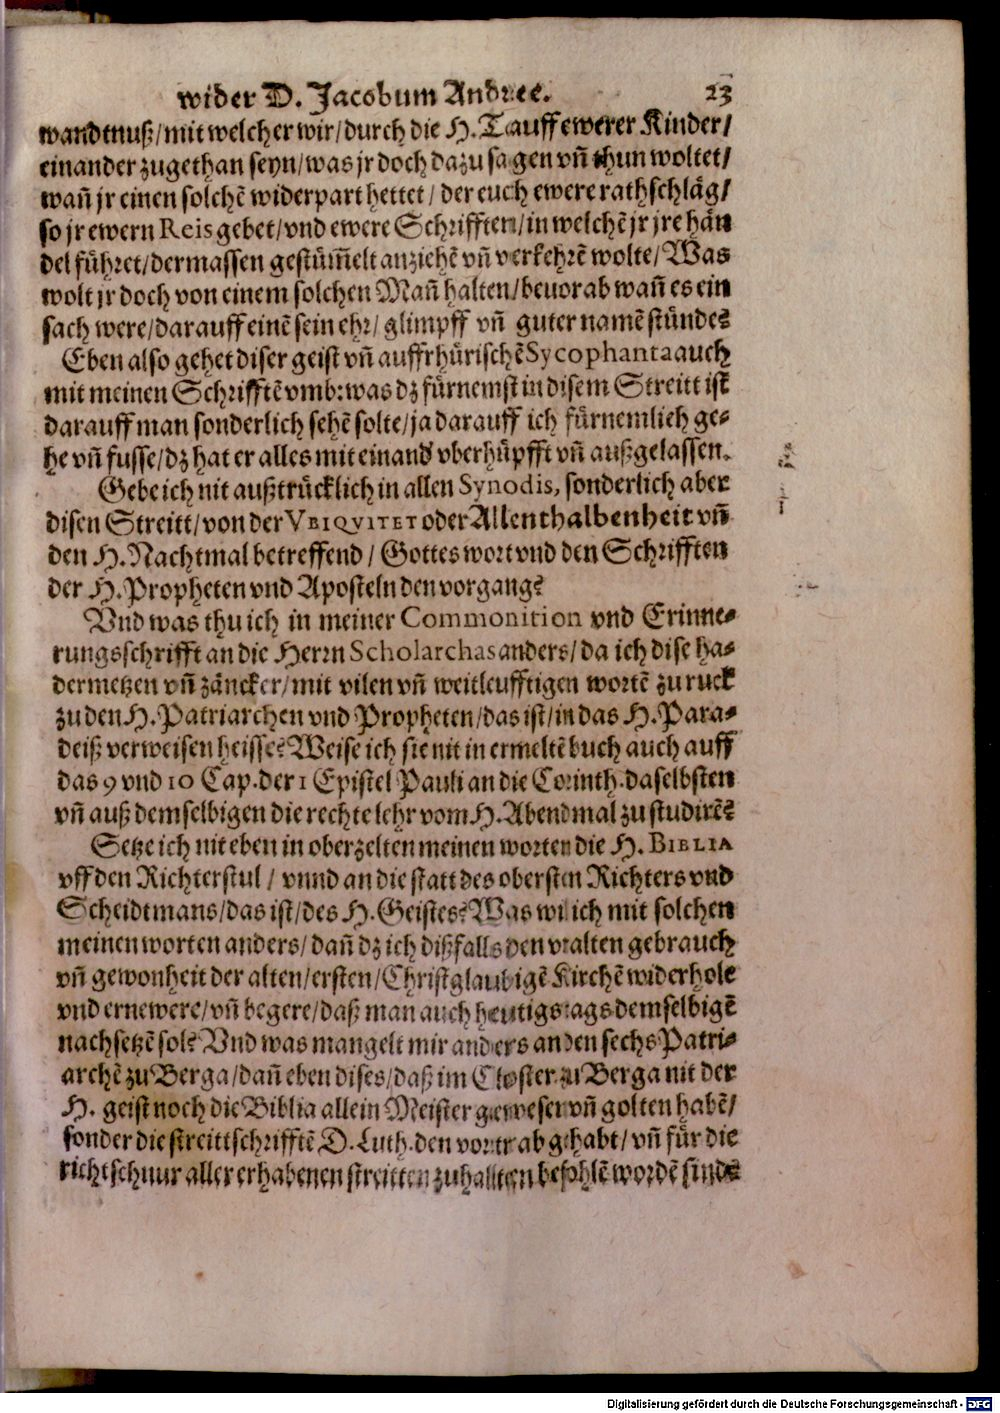 wider D. Jacobum Andree. 23
wandtnuß/ mit welcher wir/ durch die H. Tauff ewerer Kinder/
einander zugethan seyn/ was jr doch dazu sagen vñ thun woltet/
wañ jr einen solchẽ widerpart hettet/ der euch ewere rathschläg/
so jr ewern Reis gebet/ vnd ewere Schrifften/ in welchẽ jr jre hän
del führet/ dermassen gestüm̃elt anziehẽ vñ verkehrẽ wolte/ Was
wolt jr doch von einem solchen Mañ halten/ beuorab wañ es ein
sach were/ darauff einẽ sein ehr/ glimpff vñ guter namẽ stünde?
Eben also gehet diser geist vñ auffrhürischẽ Sycophanta auch
mit meinen Schrifftẽ vmb: was dz fürnemst in disem Streitt ist
darauff man sonderlich sehẽ solte/ ja darauff ich fürnemlich ge-
he vñ fusse/ dz hat er alles mit einand' vberhüpfft vñ außgelassen.
Gebe ich nit außtrücklich in allen Synodis, sonderlich aber
disen Streitt/ von der VBIQVITET oder Allenthalbenheit vñ
den H. Nachtmal betreffend/ Gottes wort vnd den Schrifften
der H. Propheten vnd Aposteln den vorgang?
Vnd was thu ich in meiner Commonition vnd Erinne-
rungsschrifft an die Herrn Scholarchas anders/ da ich dise ha-
dermetzen vñ zäncker/ mit vilen vñ weitleufftigen wortẽ zu ruck
zu den H. Patriarchen vnd Propheten/ das ist/ in das H. Para-
deiß verweisen heisse? Weise ich sie nit in ermeltẽ buch auch auff
das 9 vnd 10 Cap. der 1 Epistel Pauli an die Corinth. daselbsten
vñ auß demselbigen die rechte lehr vom H. Abendmal zu studirẽ?
Setze ich nit eben in oberzelten meinen worten die H. BIBLIA
vff den Richterstul/ vnnd an die statt des obersten Richters vnd
Scheidtmans/ das ist/ des H. Geistes? Was wil ich mit solchen
meinen worten anders/ dañ dz ich dißfalls den vralten gebrauch
vñ gewonheit der alten/ ersten/ Christglaubigẽ Kirchẽ widerhole
vnd ernewere/ vñ begere/ daß man auch heutigs tags demselbigẽ
nachsetzẽ sol? Vnd was mangelt mir anders an den sechs Patri-
archẽ zu Berga/ dañ eben dises/ daß im Closter zu Berga nit der
H. geist noch die Biblia allein Meister gewesen vñ golten habẽ/
sonder die streittschrifftẽ D. Luth. den vortrab gehabt/ vñ für die
richtschnur aller erhabenen streitten zuhallten befohlẽ wordẽ sind?
Digitalisierung gefördert durch die Deutsche Forschungsgemeinschaft - DFG